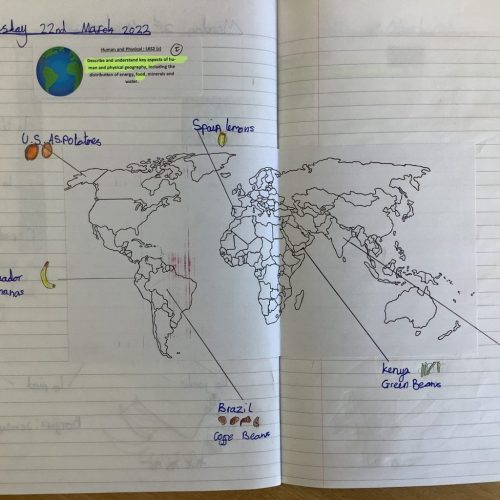 sday 22nd March 2022
Human and Physical : LKS2 (c)
Describe and understand key aspects of hu-
man and physical geography, including the
distribution of energy, food, minerals and
water.
Spain lemons
U.S.A Spotatoes
uador
nanas
Kenya
Green Beans
Brazil
Coffe Beans